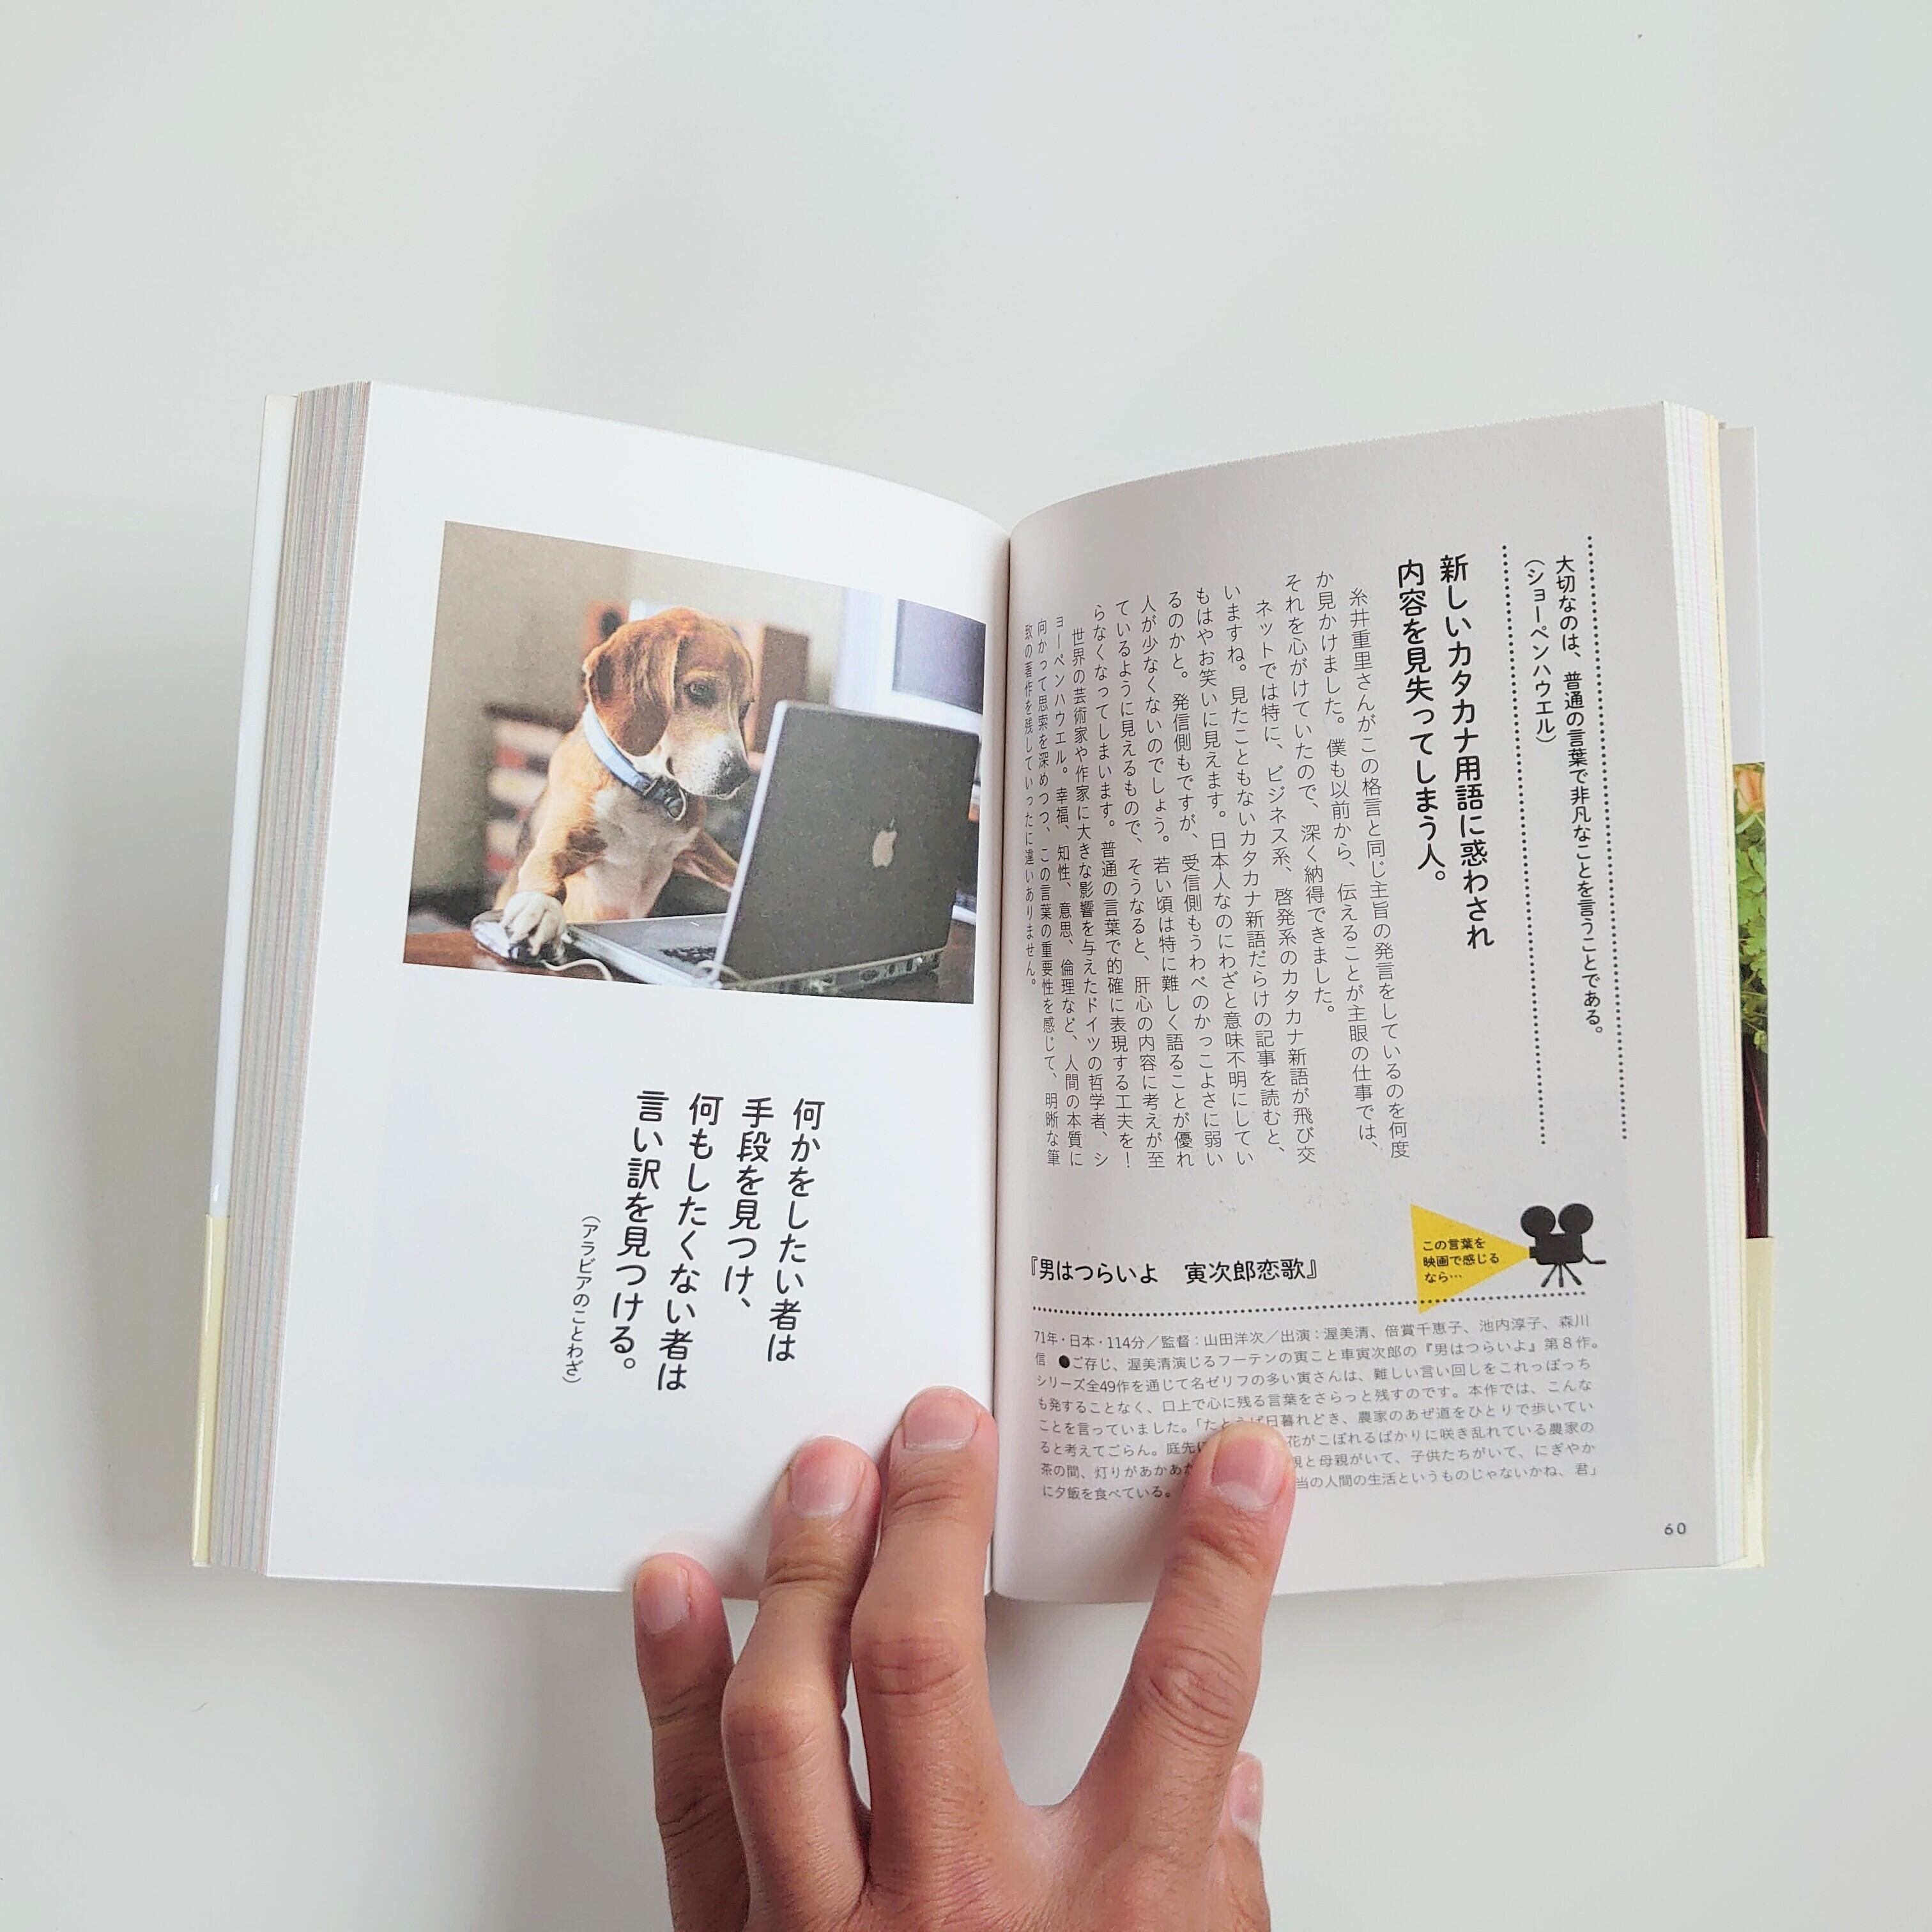 大切なのは、普通の言葉で非凡なことを言うことである。
（ショーペンハウエル）
新しいカタカナ用語に惑わされ
内容を見失ってしまう人。
糸井重里さんがこの格言と同じ主旨の発言をしているのを何度
か見かけました。僕も以前から、伝えることが主眼の仕事では、
それを心がけていたので、深く納得できました。
ネットでは特に、ビジネス系、啓発系のカタカナ新語が飛び交
いますね。見たこともないカタカナ新語だらけの記事を読むと、
もはやお笑いに見えます。日本人なのにわざと意味不明にしてい
るのかと。発信側もですが、受信側もうわべのかっこよさに弱い
人が少なくないのでしょう。若い頃は特に難しく語ることが優れ
ているように見えるもので、そうなると、肝心の内容に考えが至
らなくなってしまいます。普通の言葉で的確に表現する工夫を！
世界の芸術家や作家に大きな影響を与えたドイツの哲学者、シ
ョーペンハウエル。幸福、知性、意思、倫理など、人間の本質に
向かって思索を深めつつ、この言葉の重要性を感じて、明晰な筆
致の著作を残していったに違いありません。
この言葉を
映画で感じる
なら…
『男はつらいよ 寅次郎恋歌』
71年・日本・114分／監督：山田洋次／出演：渥美清、倍賞千恵子、池内淳子、森川
信 ●ご存じ、渥美清演じるフーテンの寅こと車寅次郎の『男はつらいよ』第8作。
シリーズ全49作を通じて名ゼリフの多い寅さんは、難しい言い回しをこれっぽっち
も発することなく、口上で心に残る言葉をさらっと残すのです。本作では、こんな
ことを言っていました。「たとえば日暮れどき、農家のあぜ道をひとりで歩いてい
ると考えてごらん。庭先に 花がこぼれるばかりに咲き乱れている農家の
茶の間、灯りがあかあか 親と母親がいて、子供たちがいて、にぎやか
に夕飯を食べている。 当の人間の生活というものじゃないかね、君」
60
何かをしたい者は
手段を見つけ、
何もしたくない者は
言い訳を見つける。
（アラビアのことわざ）